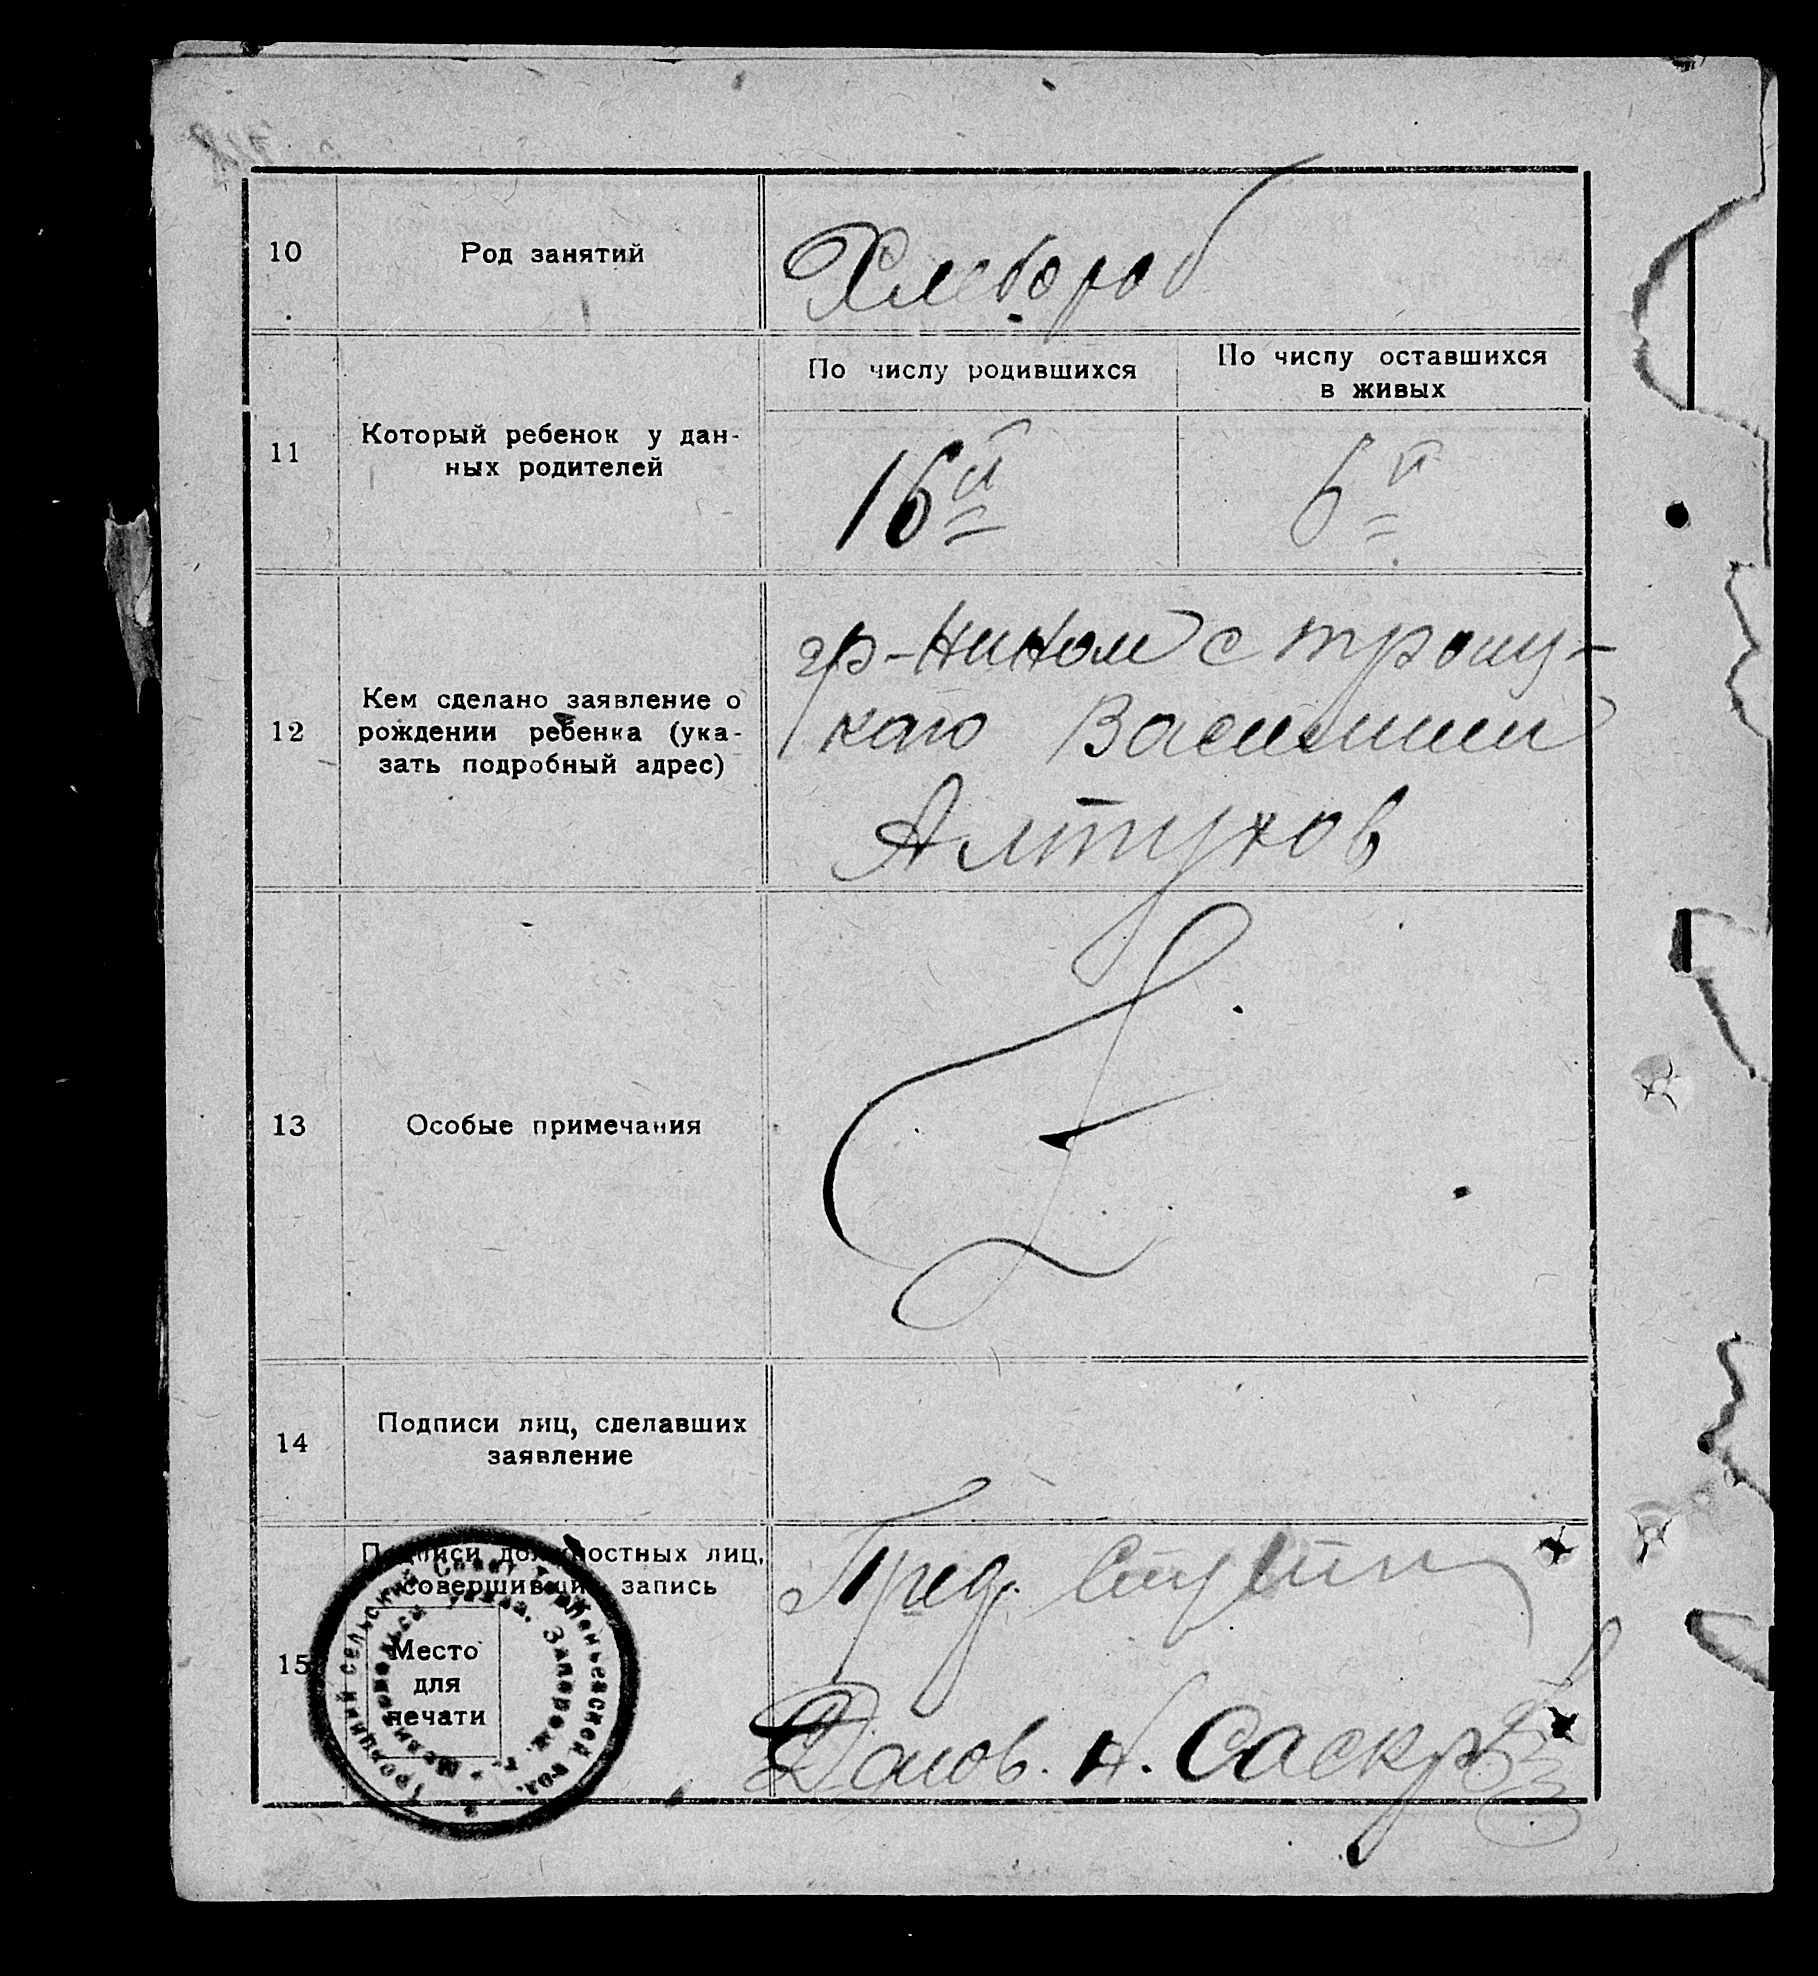 10
Род занятий
Хлебороб
11
Который ребенок у дан-
ных родителей
По числу родившихся
16й
По числу оставшихся
в живых
6й
12
Кем сделано заявление о
рождении ребенка (ука-
зать подробный адрес)
гр-нином с Троиц-
каго Василием
Алтухов
13
Особые примечания
14
Подписи лиц, сделавших
заявление
15
Подписи должностных лиц,
совершивших запись
Место
для
печати
Троицкий сельский Совет Терпеньевской вол.
Запорож. г.
Пред.
Делов.